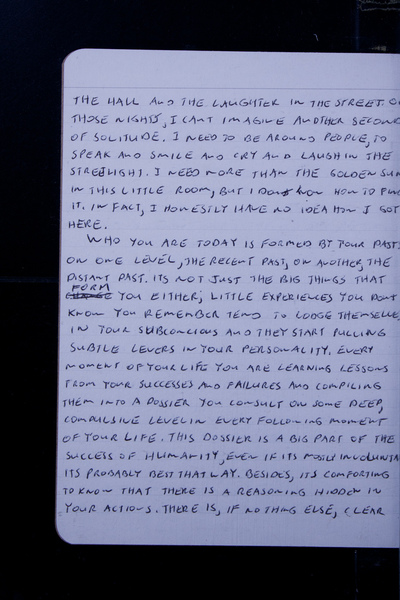 THE HALL AND THE LAUGHTER IN THE STREET. ON
THOSE NIGHTS, I CANT IMAGINE ANOTHER SECOND
OF SOLITUDE. I NEED TO BE AROUND PEOPLE, TO
SPEAK AND SMILE AND CRY AND LAUGH IN THE
STREETLIGHT. I NEED MORE THAN THE GOLDEN SUN
IN THIS LITTLE ROOM, BUT I DONT KNOW HOW TO
IT. IN FACT, I HONESTLY HAVE NO IDEA HOW I GOT
HERE.
WHO YOU ARE TODAY IS FORMED BY YOUR PAST;
ON ONE LEVEL, THE RECENT PAST, ON ANOTHER, THE
DISTANT PAST. ITS NOT JUST THE BIG THINGS THAT
FORM
YOU EITHER; LITTLE EXPERIENCES YOU DON'T
KNOW YOU REMEMBER TEND TO LODGE THEMSELVES
IN YOUR SUBCONCIOUS AND THEY START PULLING
SUBTLE LEVERS IN YOUR PERSONALITY. EVERY
MOMENT OF YOUR LIFE YOU ARE LEARNING LESSONS
FROM YOUR SUCCESSES AND FAILURES AND COMPILING
THEM INTO A DOSSIER YOU CONSULT ON SOME DEEP,
COMPULSIVE LEVEL IN EVERY FOLLOWING MOMENT
OF YOUR LIFE. THIS DOSSIER IS A BIG PART OF THE
SUCCESS OF HUMANITY, EVEN IF ITS MOSTLY INVOLUNTA
ITS PROBABLY BEST THAT WAY. BESIDES, ITS COMFORTING
TO KNOW THAT THERE IS A REASONING HIDDEN IN
YOUR ACTIONS. THERE IS, IF NOTHING ELSE, CLEAR